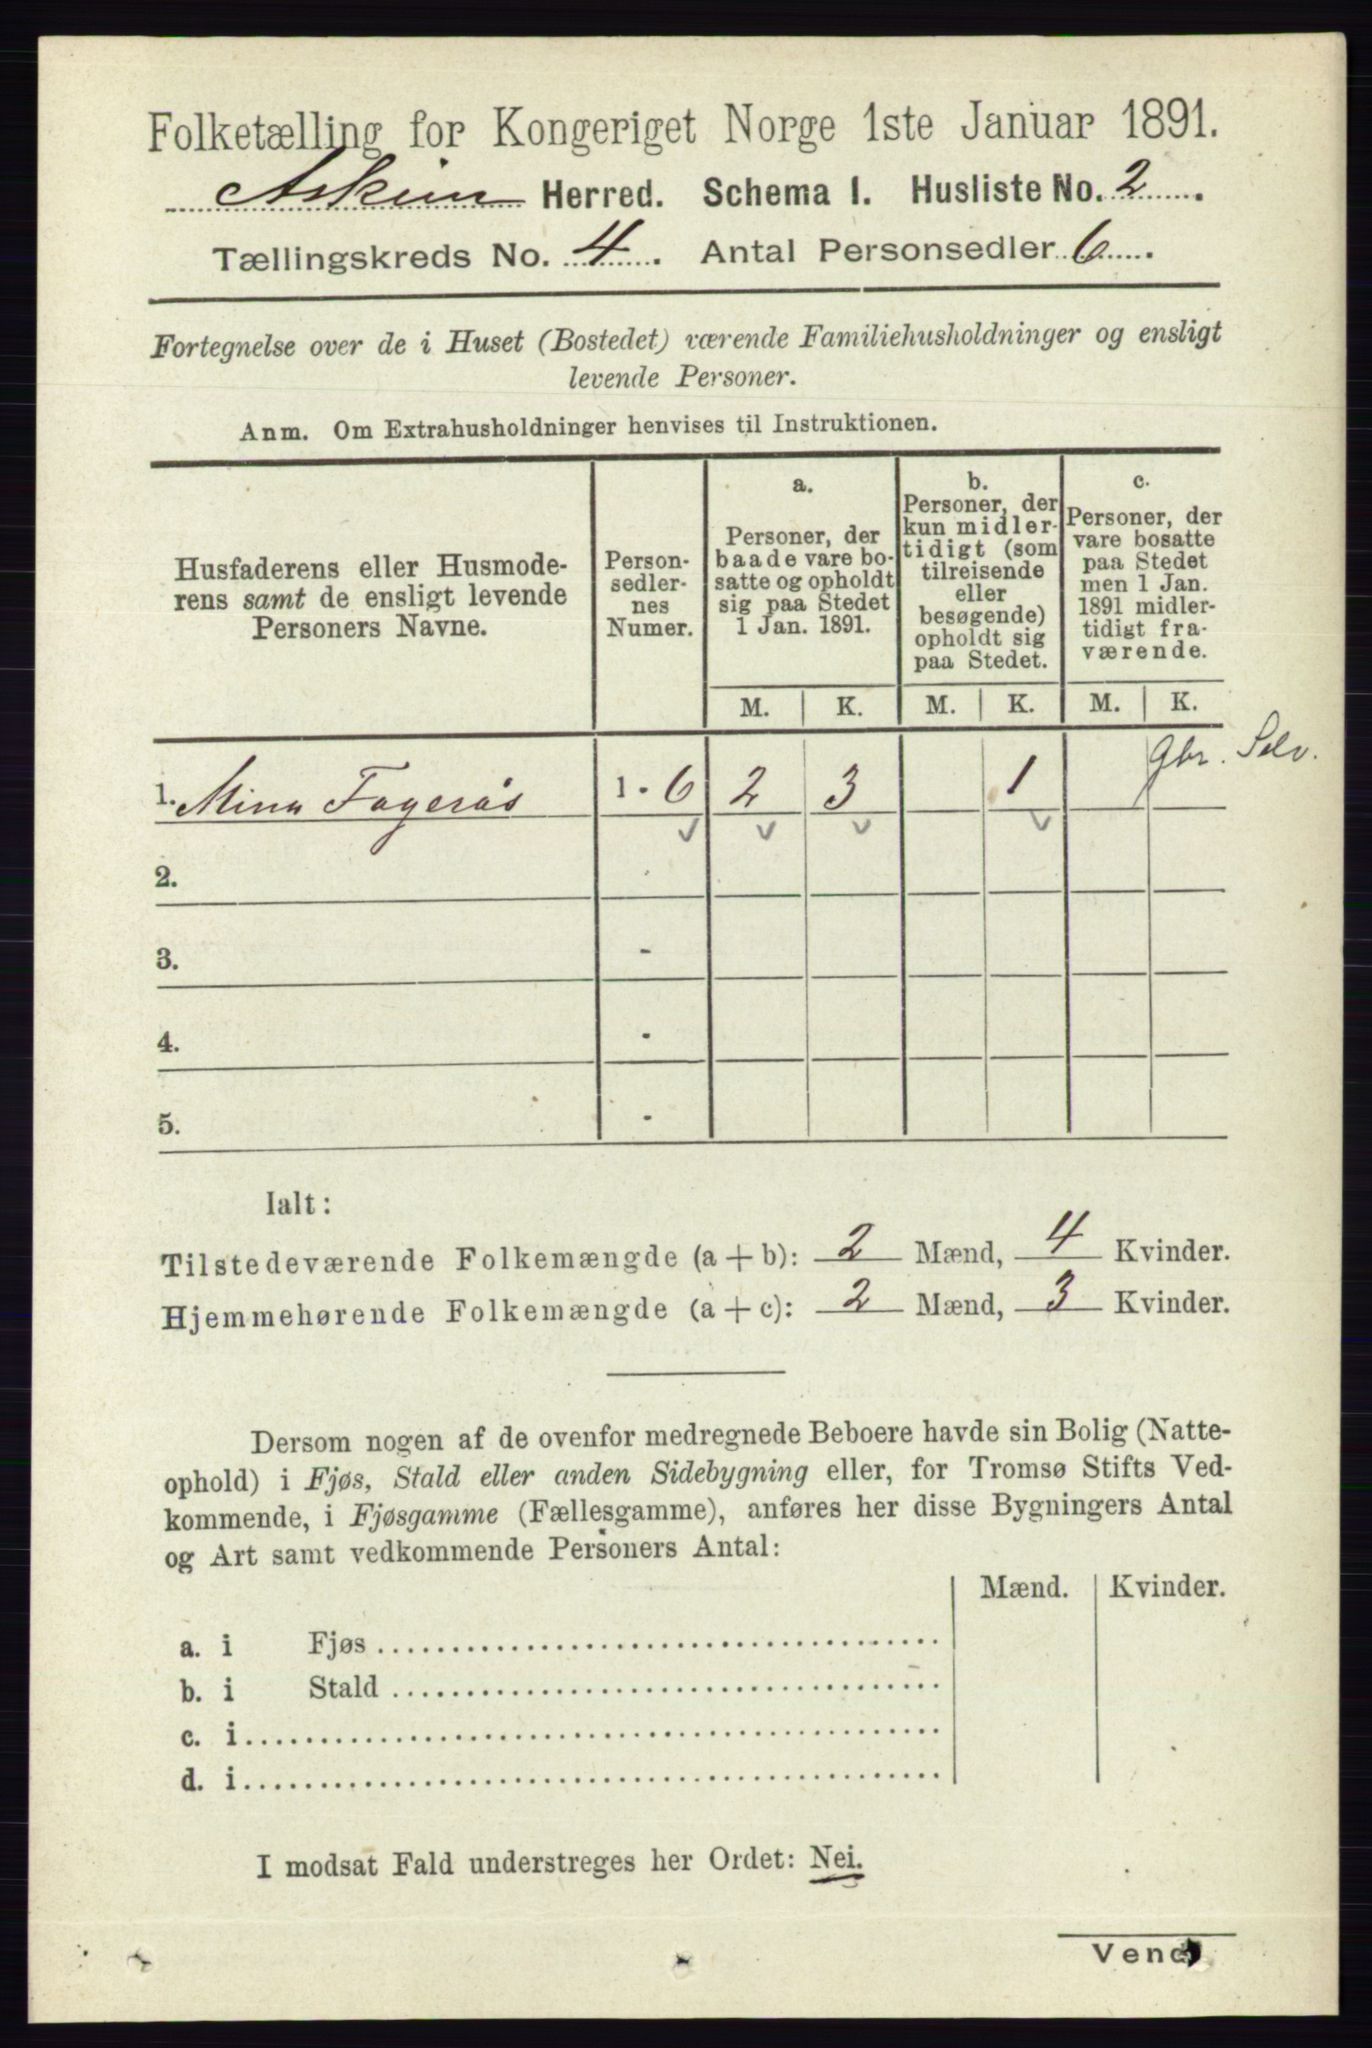 Folketælling for Kongeriget Norge 1ste Januar 1891.
Askim Herred. Schema I. Husliste No. 2
Tællingskreds No. 4. Antal Personsedler 6.
Fortegnelse over de i Huset (Bostedet) værende Familiehusholdninger og ensligt
levende Personer.
Anm. Om Extrahusholdninger henvises til Instruktionen.
Husfaderens eller Husmode-
rens samt de ensligt levende
Personers Navne.
Person-
sedler-
nes
Numer.
a.
Personer, der
baade vare bo-
satte og opholdt
sig paa Stedet
1 Jan. 1891.
b.
Personer, der
kun midler-
tidigt (som
tilreisende
eller
besøgende)
opholdt sig
paa Stedet.
c.
Personer, der
vare bosatte
paa Stedet
men 1 Jan.
1891 midler-
tidigt fra-
værende.
M. K. M. K. M. K.
1. Mina Fagerås 1 - 6 2 3 1 gbr. Selv.
2.
3. -
4. -
5. -
Ialt:
Tilstedeværende Folkemængde (a + b): 2 Mænd, 4 Kvinder.
Hjemmehørende Folkemængde (a + c): 2 Mænd, 3 Kvinder.
Dersom nogen af de ovenfor medregnede Beboere havde sin Bolig (Natte-
ophold) i Fjøs, Stald eller anden Sidebygning eller, for Tromsø Stifts Ved-
kommende, i Fjøsgamme (Fællesgamme), anføres her disse Bygningers Antal
og Art samt vedkommende Personers Antal:
Mænd. Kvinder.
a. i Fjøs
b. i Stald
c. i
d. i
I modsat Fald understreges her Ordet: Nei.
Vend